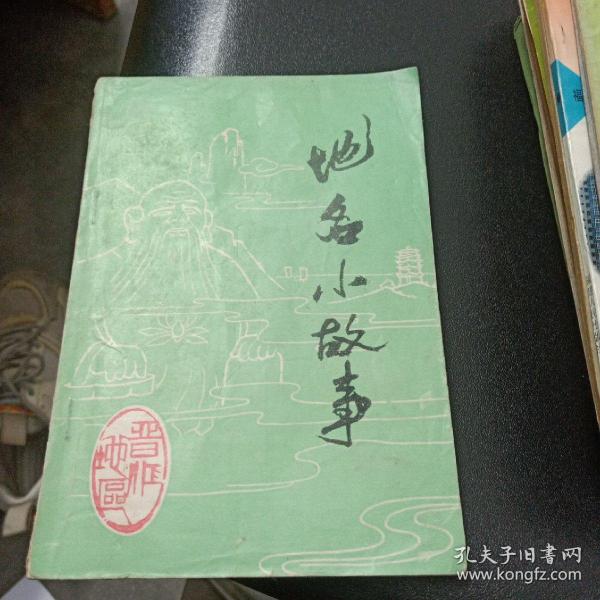 地名小故事
晋江
地區
孔夫子旧書网
www.kongfz.com